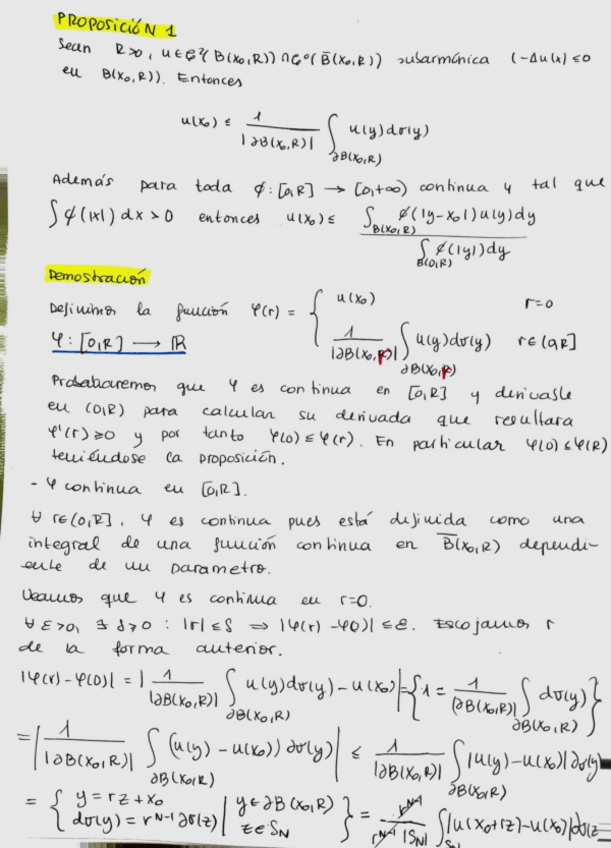 PROPOSICIÓN 1
Sean R>0, u∈ℰ²(B(x₀,R))∩ℰ⁰(B̄(x₀,R)) subarmónica (-Δu(x)≤0
en B(x₀,R)). Entonces
u(x₀) ≤ 1/|∂B(x₀,R)| ∫_{∂B(x₀,R)} u(y)dσ(y)
Además para toda ϕ: [0,R] → [0,+∞) continua y tal que
∫ϕ(|x|) dx>0 entonces u(x₀)≤ ∫_{B(x₀,R)} ϕ(|y-x₀|)u(y)dy / ∫_{B(0,R)} ϕ(|y|)dy
Demostración
Definimos la función φ(r) = { u(x₀) r=0
φ: [0,R] → ℝ 1/|∂B(x₀,r)| ∫_{∂B(x₀,r)} u(y)dσ(y) r∈(0,R]
Probaremos que φ es continua en [0,R] y derivable
en (0,R) para calcular su derivada que resultara
φ'(r)≥0 y por tanto φ(0)≤φ(r). En particular φ(0)≤φ(R)
teniéndose la proposición.
- φ continua en [0,R].
∀ r∈(0,R], φ es continua pues está definida como una
integral de una función continua en B̄(x₀,R) dependi-
ente de un parametro.
Veamos que φ es continua en r=0.
∀ε>0, ∃ δ>0 : |r|≤δ ⇒ |φ(r)-φ(0)|≤ε. Escojamos r
de la forma anterior.
|φ(r)-φ(0)| = | 1/|∂B(x₀,R)| ∫_{∂B(x₀,R)} u(y)dσ(y) - u(x₀)| = {1 = 1/|∂B(x₀,R)| ∫_{∂B(x₀,R)} dσ(y)}
= | 1/|∂B(x₀,R)| ∫_{∂B(x₀,R)} (u(y)-u(x₀))dσ(y)| ≤ 1/|∂B(x₀,R)| ∫_{∂B(x₀,R)} |u(y)-u(x₀)|dσ(y)
= { y=rz+x₀ | y∈∂B(x₀,R)
dσ(y)=r^{N-1}dσ(z) | z∈S_N } = r^{N-1}/(r^{N-1}|S_N|) ∫_{S_N} |u(x₀+rz)-u(x₀)|dσ(z